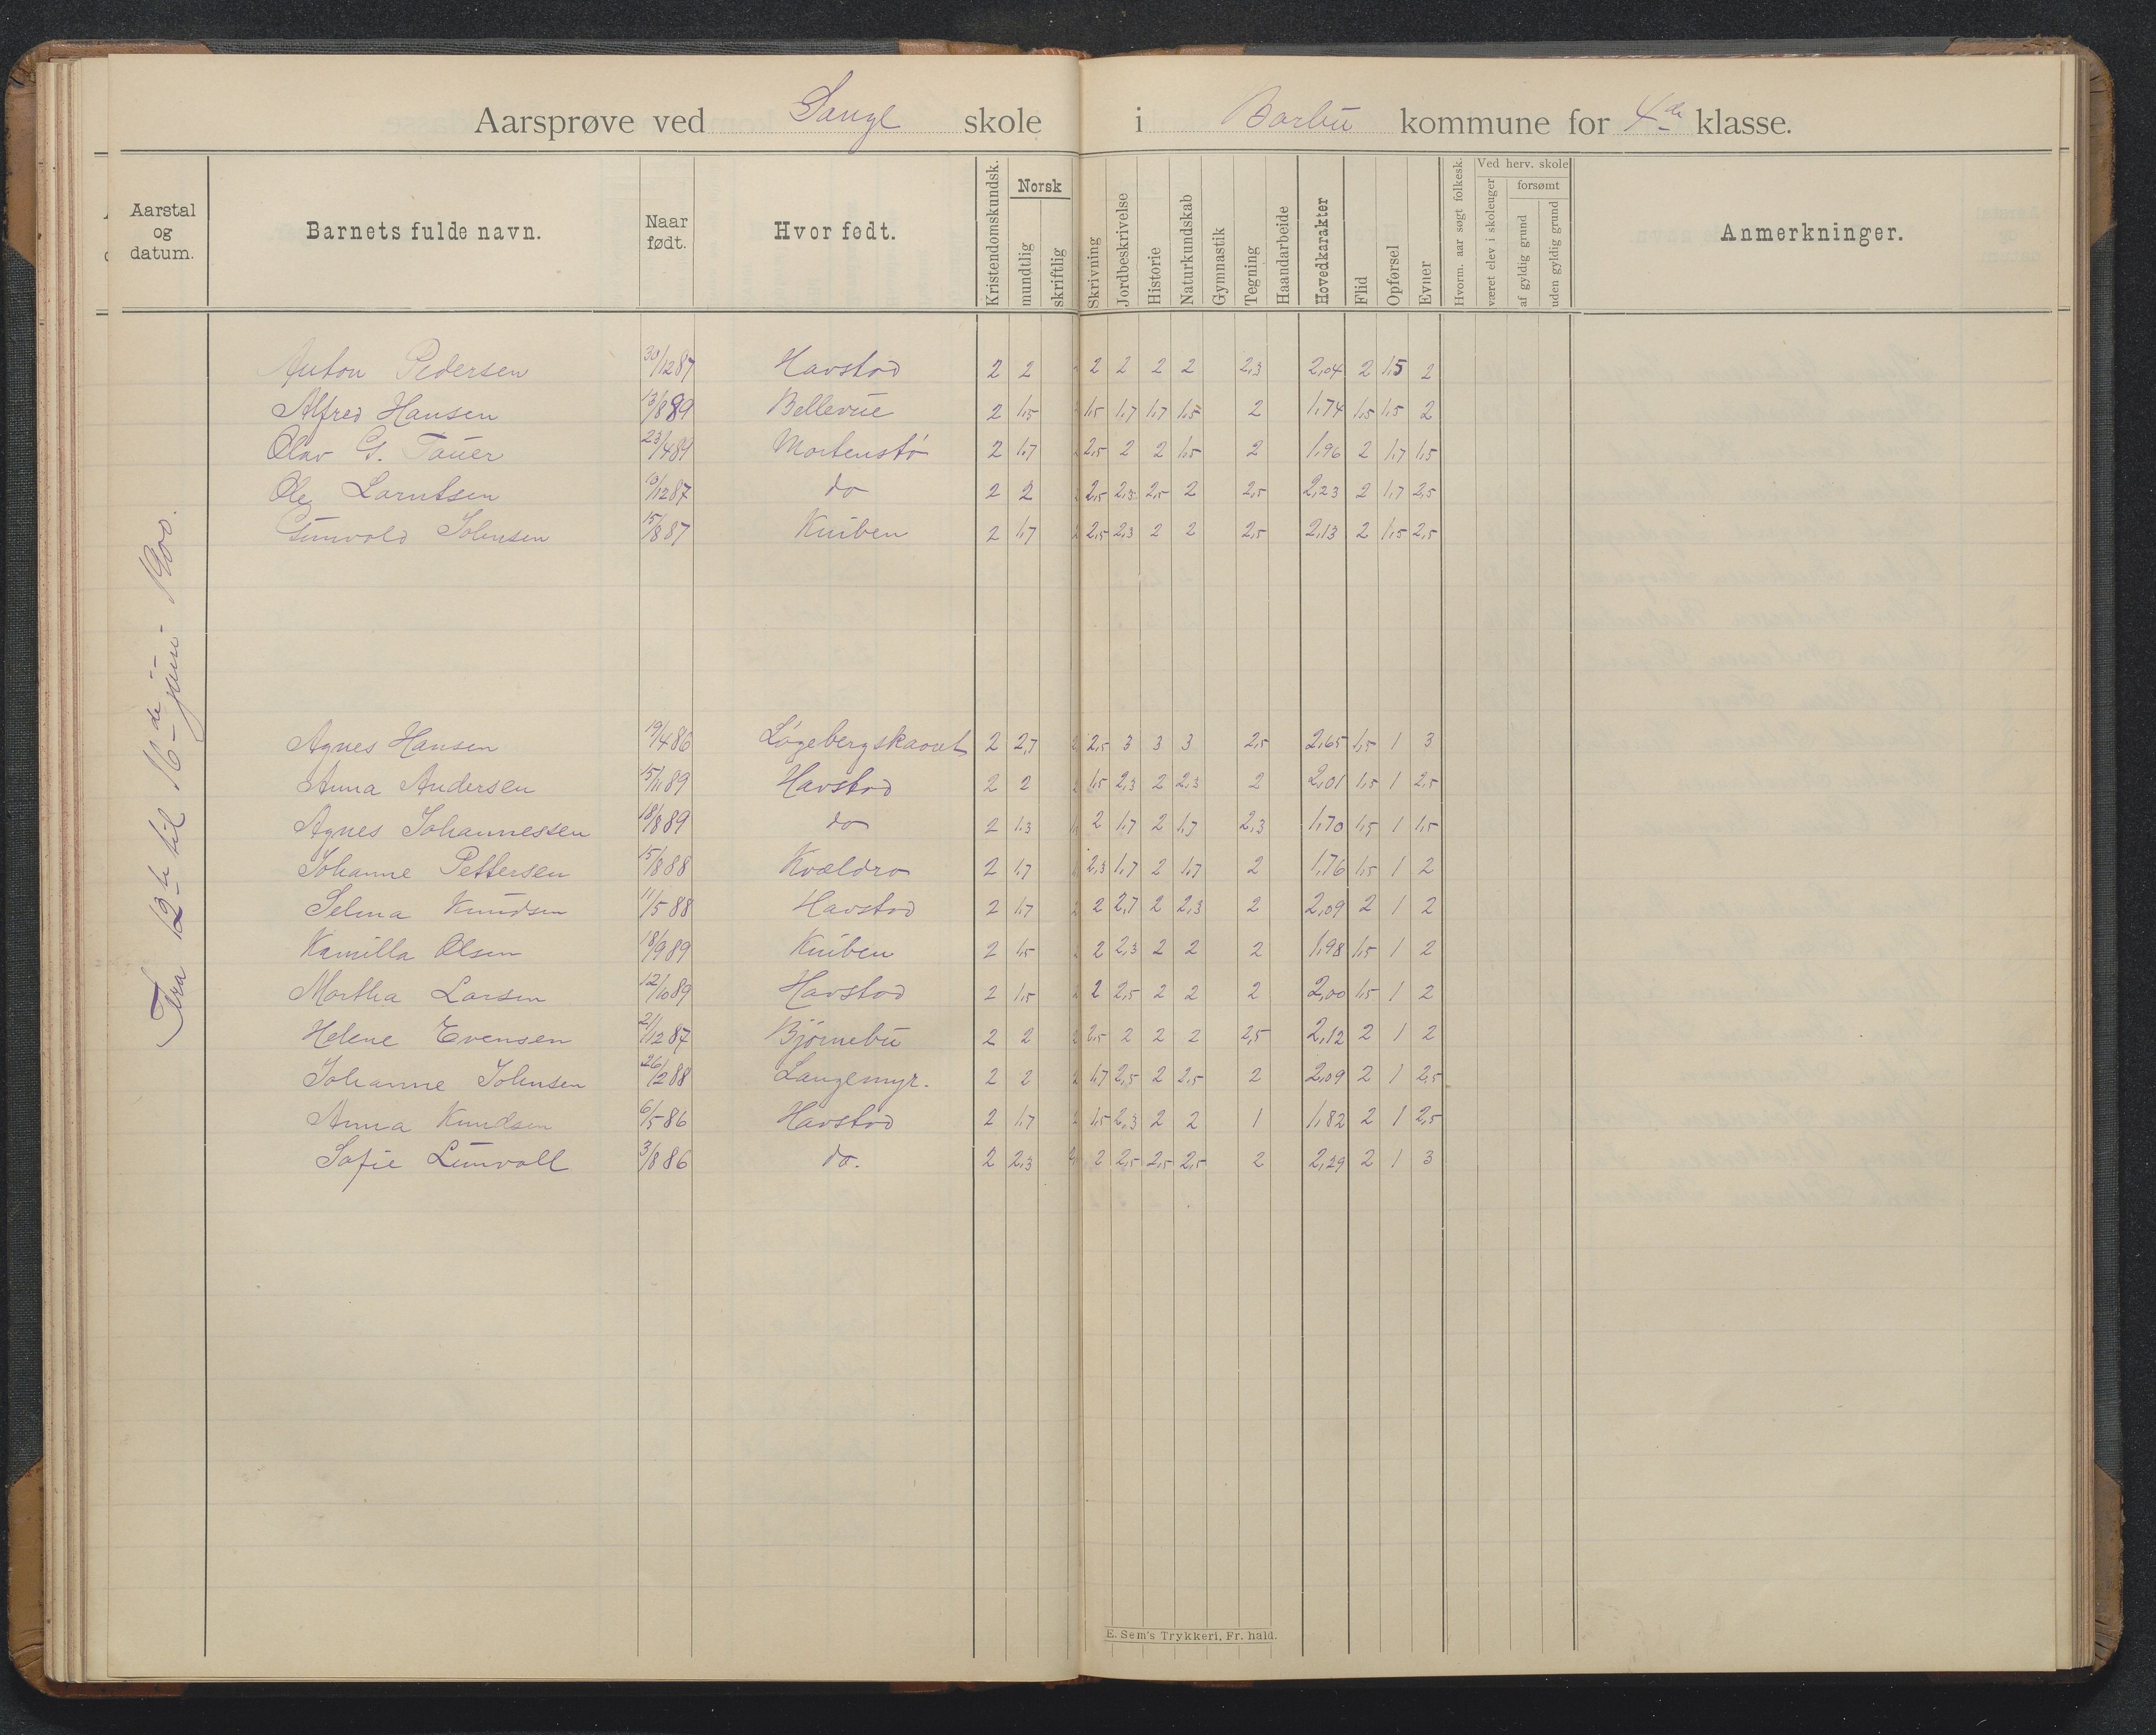 Aarsprøve ved Songe skole i Barbu kommune for 4de klasse.
Aarstal og datum.
Barnets fulde navn.
Naar født.
Hvor født.
Kristendomskundsk.
Norsk
mundtlig
skriftlig
Skrivning
Jordbeskrivelse
Historie
Naturkundskab
Gymnastik
Tegning
Haandarbeide
Hovedkarakter
Flid
Opførsel
Evner
Hvorm. aar søgt folkesk.
Ved herv. skole
været elev i skoleuger
forsømt
af gyldig grund
uden gyldig grund
Anmerkninger.
Fra 12te til 16de juni 1900.
Anton Pedersen 30/12 87 Havstad 2 2 2 2 2 2 2,3 2,04 2 1,5 2
Alfred Hansen 13/8 89 Bellevue 2 1,5 1,5 1,7 1,7 1,5 2 1,74 1,5 1,5 2
Olav G. Tauer 23/4 89 Mortenstø 2 1,7 2,5 2 2 1,5 2 1,96 2 1,7 1,5
Ole Larntsen 10/12 87 do 2 2 2,5 2,3 2,5 2 2,5 2,23 2 1,7 2,5
Gunvald Johnsen 15/8 87 Kniben 2 1,7 2,5 2,3 2 2 2,5 2,13 2 1,5 2,5
Agnes Hansen 19/4 86 Løgebergskaaret 2 2,7 2,5 3 3 3 2,5 2,65 1,5 1 3
Anna Andersen 15/11 89 Havstad 2 2 1,5 2,3 2 2,3 2 2,01 1,5 1 2,5
Agnes Johannessen 18/8 89 do 2 1,3 2 1,7 2 1,7 2,3 1,70 1,5 1 1,5
Johanne Pettersen 15/8 88 Kvældro 2 1,7 2,3 1,7 2 1,7 2 1,76 1,5 1 2
Selma Knudsen 11/5 88 Havstad 2 1,7 2 2,7 2 2,3 2 2,09 2 1 2
Kamilla Olsen 18/9 89 Kniben 2 1,5 2 2,3 2 2 2 1,98 1,5 1 2
Martha Larsen 12/10 89 Havstad 2 1,5 2 2,5 2 2 2 2,00 1,5 1 2
Helene Evensen 21/12 87 Bjørnebu 2 2 2,5 2 2 2 2,5 2,12 2 1 2
Johanne Johnsen 26/2 88 Langemyr. 2 2 1,7 2,5 2 2,5 2 2,09 2 1 2,5
Anna Knudsen 6/5 86 Havstad 2 1,7 1,5 2,3 2 2 1 1,82 2 1 2,5
Sofie Lunvall 3/8 86 do. 2 2,3 2 2,5 2,5 2,5 2 2,29 2 1 3
E. Sem's Trykkeri, Fr. hald.